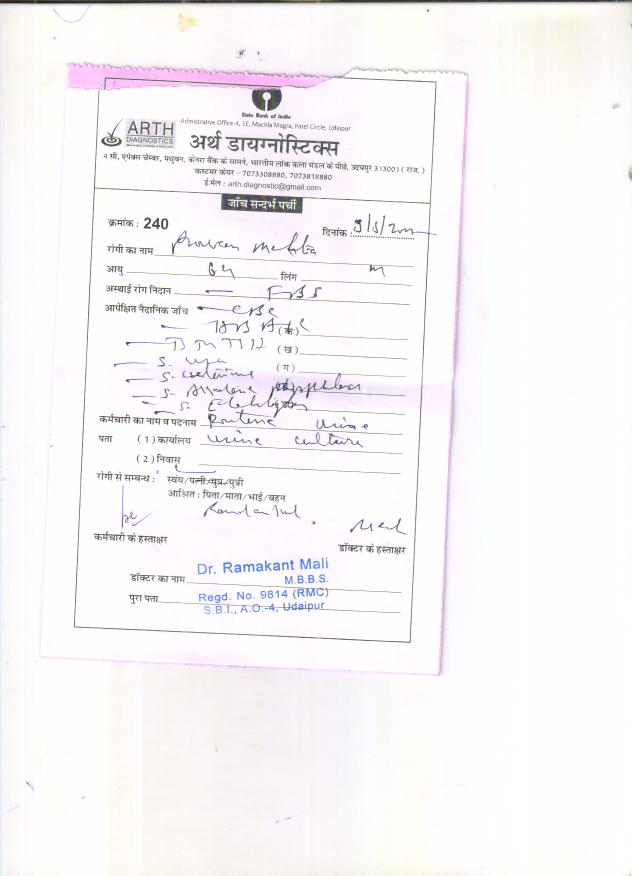 State Bank of India
Admistrative Office-4, 1E, Machla Magra, Patel Circle, Udaipur
ARTH
DIAGNOSTICS
अर्थ डायग्नोस्टिक्स
4 सी, एपेक्स चेम्बर, मधुवन, केनरा बैंक के सामने, भारतीय लोक कला मंडल के पीछे, उदयपुर 313001 ( राज. )
कस्टमर केयर - 7073308880, 7073818880
ई.मेल : arth.diagnostic@gmail.com
जाँच सन्दर्भ पर्ची
क्रमांक : 240
दिनांक :
रांगी का नाम Praveen Mehta
आयु 64 लिंग m
अस्थाई रांग निदान FBS
आपेक्षित नैदानिक जाँच CBC
(क)
( ख )
S. urea ( ग )
S. creatinine
S. Alkaline
S.
कर्मचारी का नाम व पदनाम Routine urine
पता ( 1 ) कार्यालय urine culture
( 2 ) निवास
रांगी से सम्बन्ध : स्वंय/पत्नी/पुत्र/पुत्री
आश्रित : पिता/माता/भाई/बहन
कर्मचारी के हस्ताक्षर
डॉक्टर के हस्ताक्षर
Dr. Ramakant Mali
डॉक्टर का नाम M.B.B.S.
पुरा पता Regd. No. 9814 (RMC)
S.B.I., A.O.-4, Udaipur